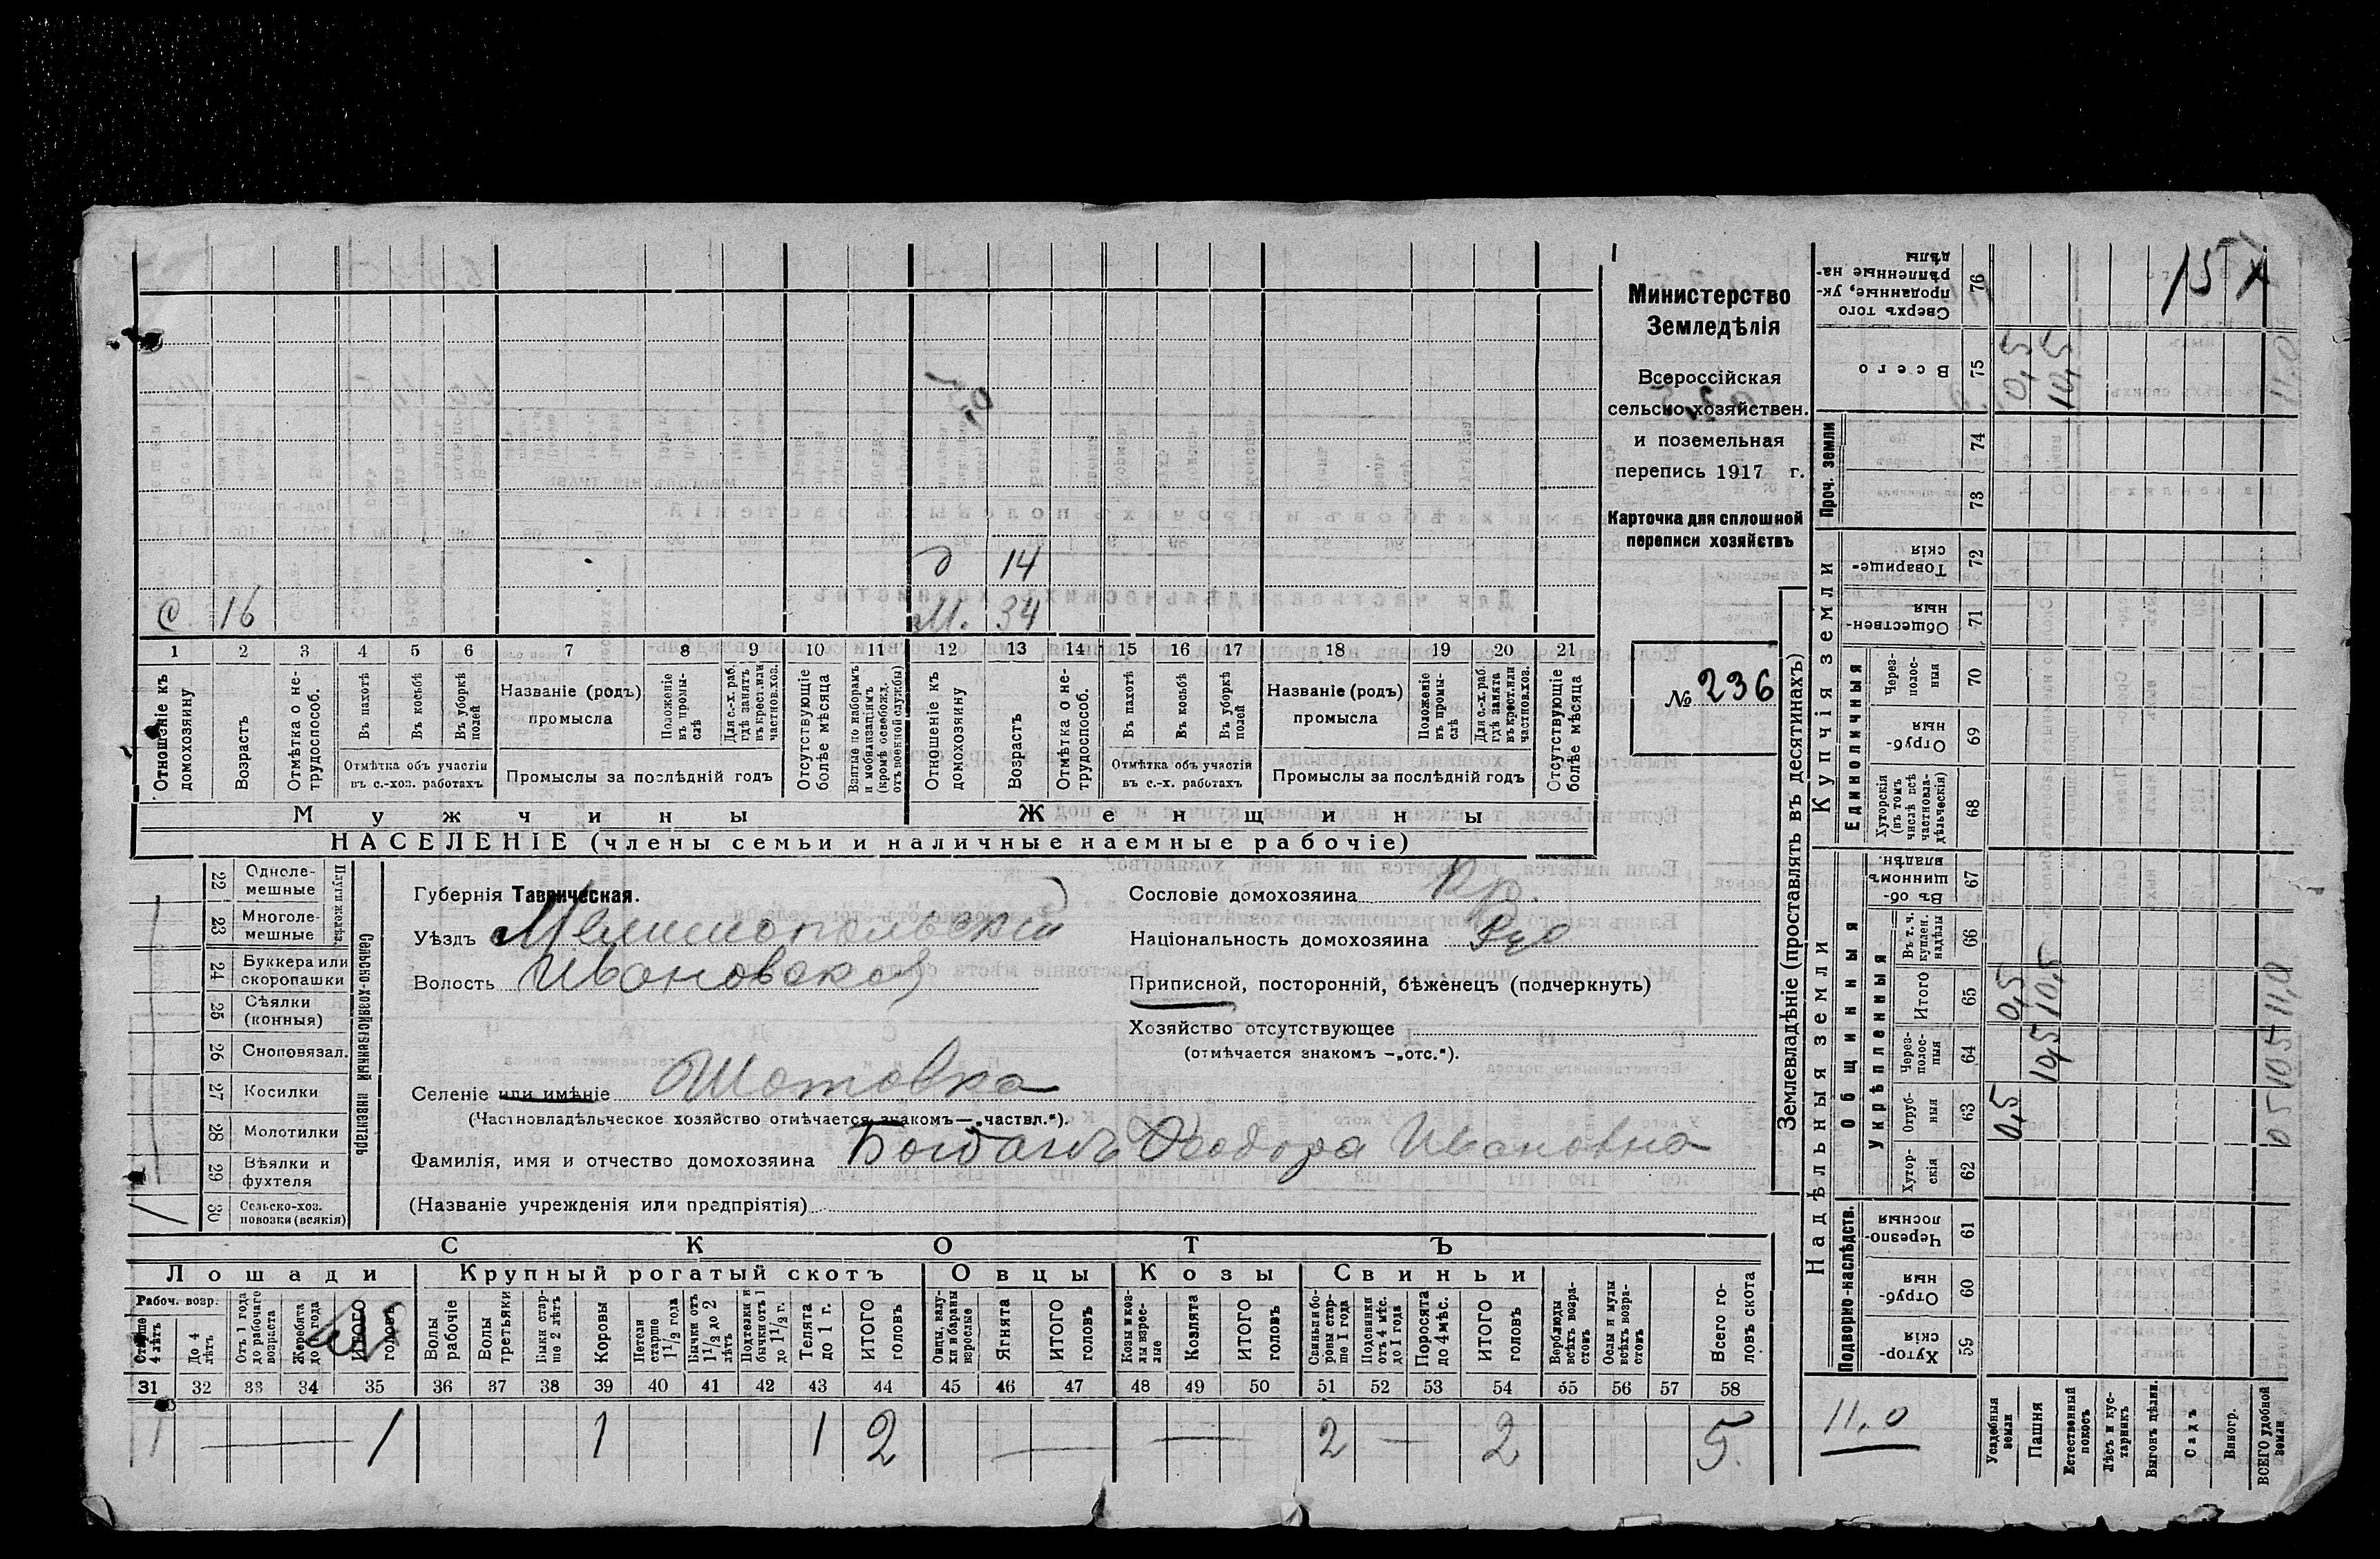 Министерство
Земледѣлія
Всероссійская
сельско хозяйствен.
и поземельная
перепись 1917 г.
Карточка для сплошной
переписи хозяйствъ
№ 236
д 14
С 16 М. 34
1 2 3 4 5 6 7 8 9 10 11 12 13 14 15 16 17 18 19 20 21
Отношеніе къ домохозяину
Возрастъ
Отмѣтка о не-трудоспособ.
Въ пахотѣ
Въ косьбѣ
Въ уборкѣ полей
Отмѣтка объ участіи
въ с.-хоз. работахъ
Названіе (родъ)
промысла
Положеніе въ промы-слѣ
Для с.-х. раб. гдѣ занятъ въ крест. или частнов. хоз.
Промыслы за послѣдній годъ
Отсутствующіе болѣе мѣсяца
Взятые по наборамъ и мобилизаціямъ (кромѣ освобожд. отъ военной службы)
Отношеніе къ домохозяину
Возрастъ
Отмѣтка о не-трудоспособ.
Въ пахотѣ
Въ косьбѣ
Въ уборкѣ полей
Отмѣтка объ участіи
въ с.-х. работахъ
Названіе (родъ)
промысла
Положеніе въ промы-слѣ
Для с.-х. раб. гдѣ занята въ крест. или частнов. хоз.
Промыслы за послѣдній годъ
Отсутствующіе болѣе мѣсяца
Мужчины Женщины
НАСЕЛЕНІЕ (члены семьи и наличные наемные рабочіе)
22 Одноле-мешные
23 Многоле-мешные
24 Буккера или скоропашки
25 Сѣялки (конныя)
26 Сноповязал.
27 Косилки
28 Молотилки
29 Вѣялки и фухтеля
30 Сельско-хоз. повозки (всякія) 1
Сельско-хозяйственный инвентарь
Губернія Таврическая.
Уѣздъ Мелитопольскій
Волость Ивановская
Селеніе или имѣніе Шотовка
(Частновладѣльческое хозяйство отмѣчается знакомъ—„частвл.“).
Фамилія, имя и отчество домохозяина Богданъ Феодора Ивановна
(Названіе учрежденія или предпріятія)
Сословіе домохозяина Кр.
Національность домохозяина
Приписной, посторонній, бѣженецъ (подчеркнуть)
Хозяйство отсутствующее
(отмѣчается знакомъ —„отс.“).
СКОТЪ
Лошади Крупный рогатый скотъ Овцы Козы Свиньи
Рабоч. возр.
Старше 4 лѣтъ
До 4 лѣтъ
Отъ 1 года до рабочаго возраста
Жеребята до 1 года
ИТОГО головъ
Волы рабочіе
Волы третьяки
Быки стар-ше 2 лѣтъ
Коровы
Нетели старше 1½ года
Бычки отъ 1½ до 2 лѣтъ
Подтелки и бычки отъ 1 до 1½ г.
Телята до 1 г.
ИТОГО головъ
Овцы, валу-хи и бараны взрослые
Ягнята
ИТОГО головъ
Козы и коз-лы взрос-лые
Козлята
ИТОГО головъ
Свиньи и бо-ровы стар-ше 1 года
Подсвинки отъ 4 мѣс. до 1 года
Поросята до 4 мѣс.
ИТОГО головъ
Верблюды всѣхъ возра-стовъ
Ослы и мулы всѣхъ возра-стовъ
Всего го-ловъ скота
31 32 33 34 35 36 37 38 39 40 41 42 43 44 45 46 47 48 49 50 51 52 53 54 55 56 57 58
1 — 1 1 1 2 — — 2 — 2 5
Землевладѣніе (проставлять въ десятинахъ)
Купчія земли
Надѣльныя земли
Сверхъ того проданные, ук-рѣпленные на-дѣлы 76
Всего 75 0,5 10,5 11,0
15
Проч. земли 74 73
Товарище-скія 72
Обществен-ныя 71
Единоличныя
Через-полос-ныя 70
Отруб-ныя 69
Хуторскія (въ томъ числѣ всѣ частновла-дѣльческія) 68
Общинныя
Въ об-щинномъ владѣн. 67
Укрѣпленныя
Въ т. ч. куплен. надѣлы 66
Итого 65 0,5 10,5 11,0
Через-полос-ныя 64 10,5 10,5
Отруб-ныя 63 0,5 0 5
Хутор-скія 62
Подворно-наслѣдств.
Черезпо-лосныя 61
Отруб-ныя 60
Хутор-скія 59
11,0
Усадебныя земли
Пашня
Естественный покосъ
Лѣсъ и кус-тарникъ
Выгонъ цѣлин.
Садъ
Виногр.
ВСЕГО удобной земли